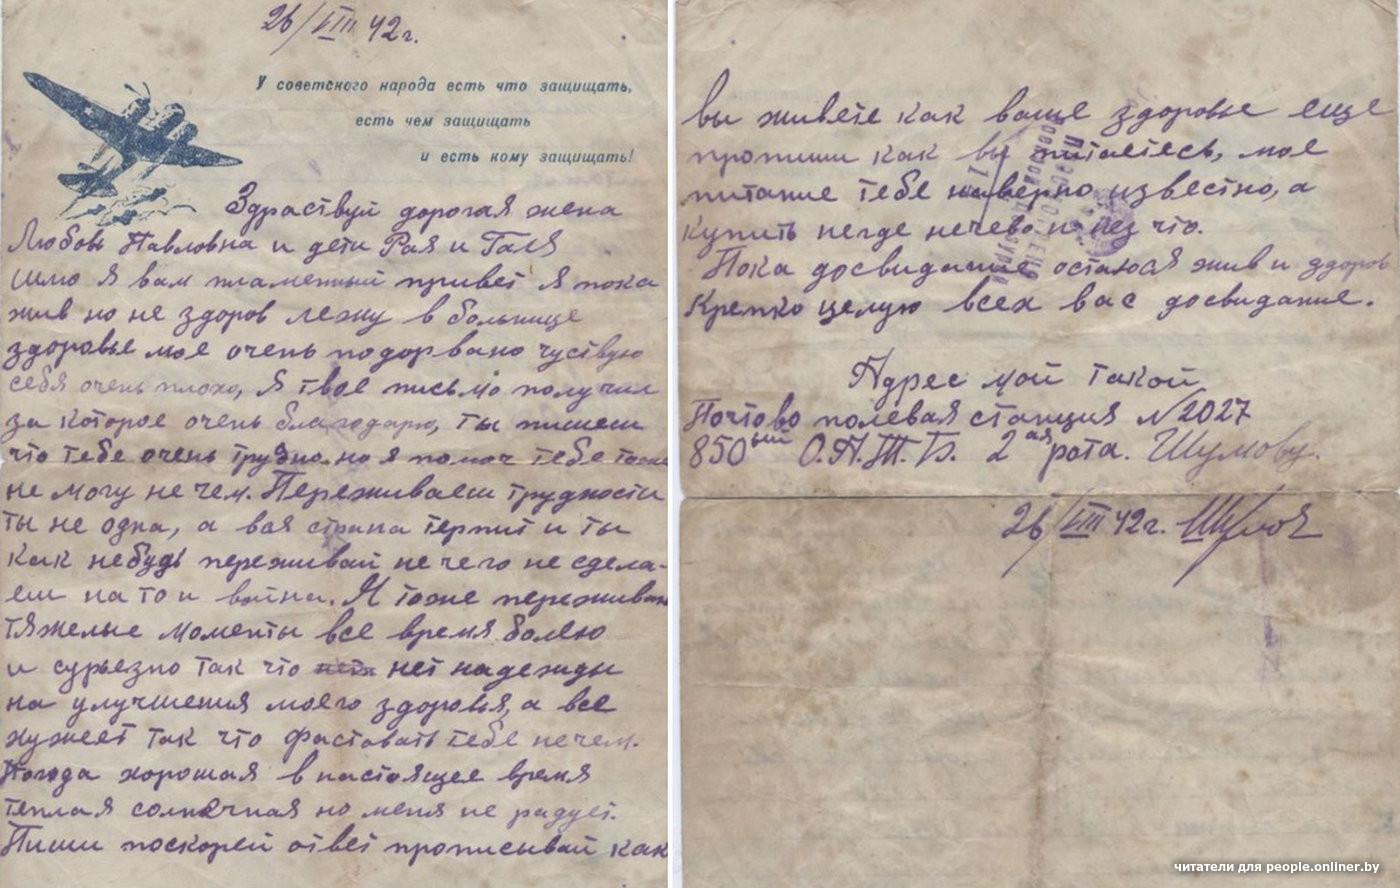 26/VIII 42г.
У советского народа есть что защищать,
есть чем защищать
и есть кому защищать!
Здраствуй дорогая жена
Любовь Павловна и дети Рая и Галя
шлю я вам пламенный привет я пока
жив но не здоров лежу в больнице
здоровье мое очень подорвано чуствую
себя очень плохо, я твое письмо получил
за которое очень благодарю, ты пишеш
что тебе очень трудно но я помоч тебе тоже
не могу не чем. Переживаеш трудности
ты не одна, а вся страна терпит и ты
как небудь переживай не чего не сдела-
еш на то и война. Я тоже переживаю
тяжелые моменты все время болею
и сурьезно так что нет надежды
на улучшения моего здоровья, а все
хужеет так что фастовать тебе нечем.
Погода хорошая в настоящее время
теплая солнечная но меня не радует.
Пиши поскорей ответ прописывай как
вы живете как ваше здоровье еще
пропиши как вы питаетесь, мое
питание тебе наверно известно, а
купить негде нечево и не что.
Пока досвидание остаюся жив и здоров
Крепко целую всех вас досвидание.
Адрес мой такой
Почтово полевая станция №2027
850ый О.А.Т.Б. 2ая рота. Шумову.
26/VIII 42г. Шумов
читатели для people.onliner.by